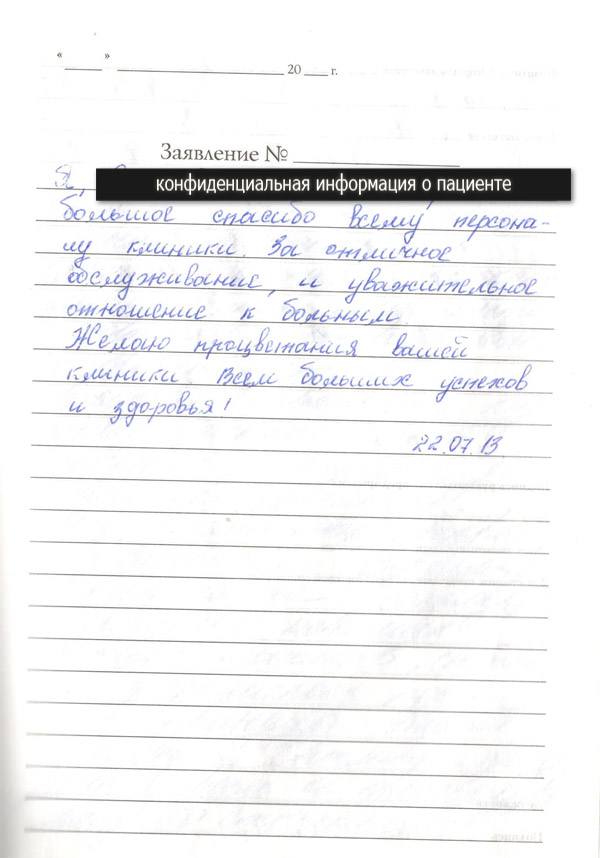 « » 20 г.
Заявление №
Я,
конфиденциальная информация о пациенте
большое спасибо всему персона-
лу клиники. За отличное
обслуживание, и уважительное
отношение к больным
Желаю процветания вашей
клиники. Всем больших успехов
и здоровья!
22.07.13.